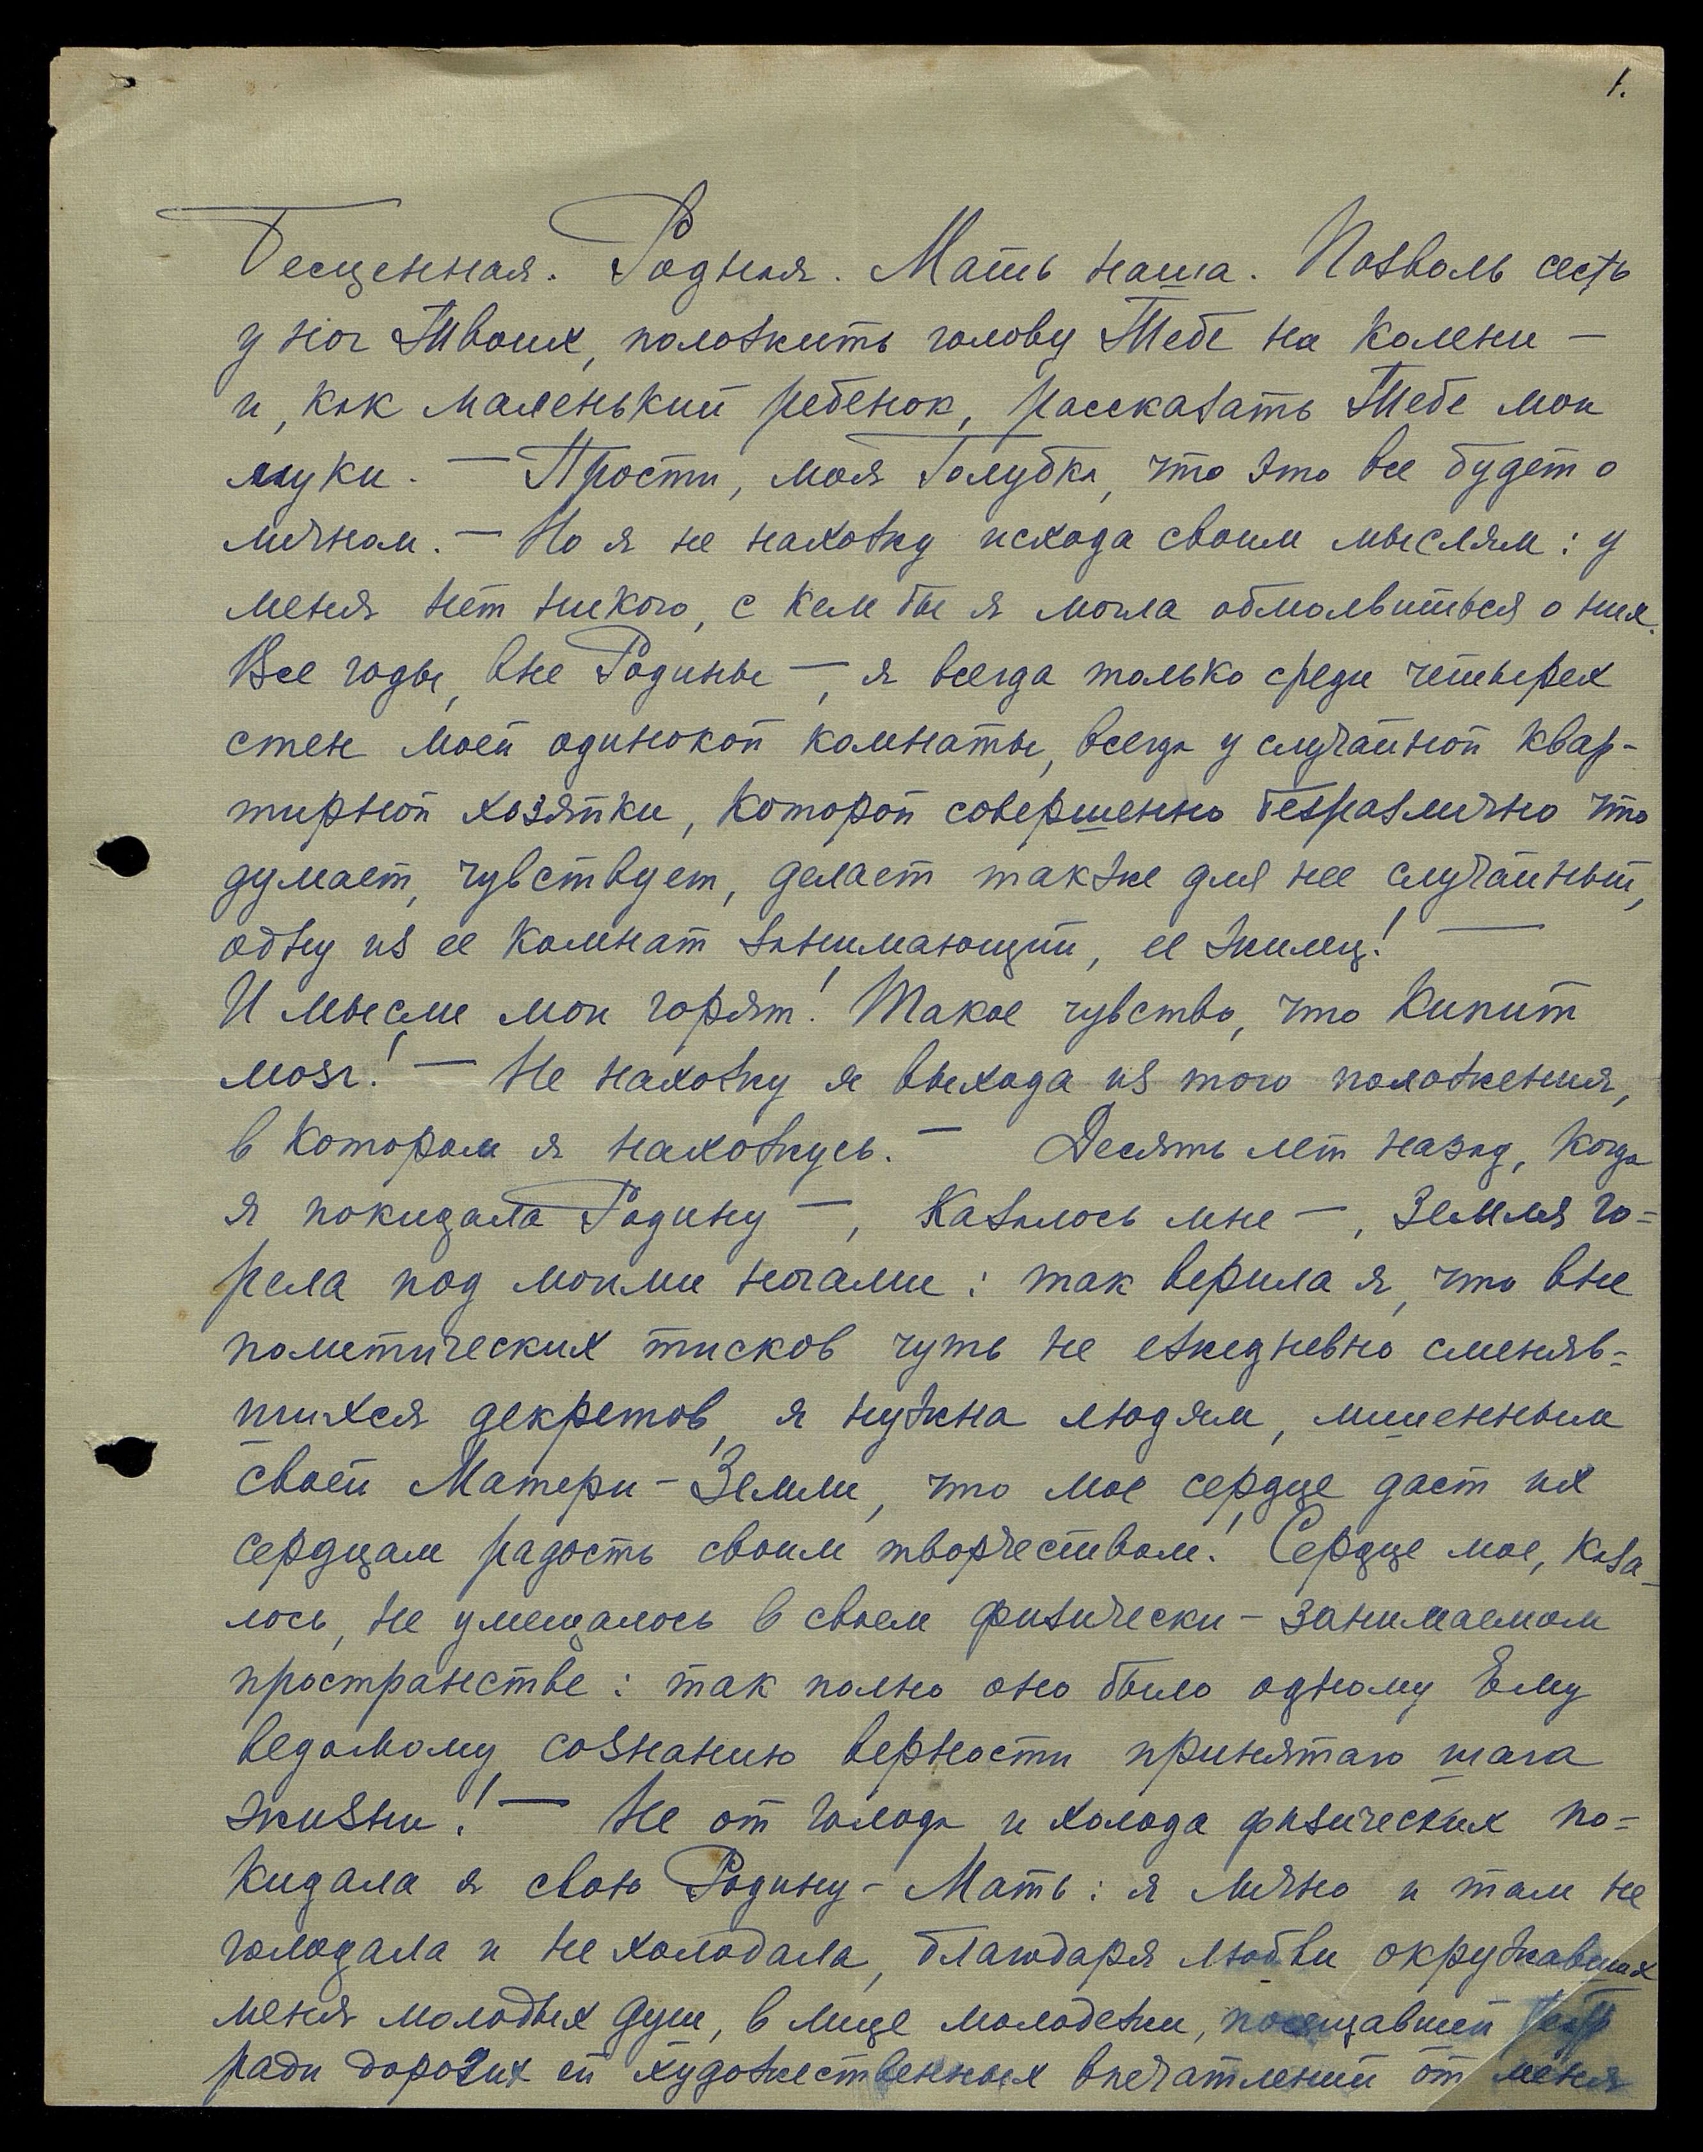 1.
Бесценная. Родная. Мать наша. Позволь сесть
у ног Твоих, положить голову Тебе на колени —
и, как маленький ребенок, рассказать Тебе мои
муки. — Прости, моя Голубка, что это все будет о
личном. — Но я не нахожу исхода своим мыслям: у
меня нет никого, с кем бы я могла обмолвиться о них.
Все годы, вне Родины —, я всегда только среди четырех
стен моей одинокой комнаты, всегда у случайной квар-
тирной хозяйки, которой совершенно безразлично что
думает, чувствует, делает также для нее случайный,
одну из ее комнат занимающий, ее жилец! —
И мысли мои горят! Такое чувство, что кипит
мозг! — Не нахожу я выхода из того положения,
в котором я нахожусь. — Десять лет назад, когда
я покидала Родину —, казалось мне —, земля го=
рела под моими ногами: так верила я, что вне
политических тисков чуть не ежедневно сменяв=
шихся декретов, я нужна людям, лишенным
своей Матери-Земли, что мое сердце даст их
сердцам радость своим творчеством! Сердце мое, каза-
лось, не умещалось в своем физически-занимаемом
пространстве: так полно оно было одному Ему
ведомому сознанию верности принятаго шага
жизни! — Не от голода и холода физических по=
кидала я свою Родину-Мать: я лично и там не
голодала и не холодала, благодаря любви окружавших
меня молодых душ, в лице молодежи, посещавшей театр
ради дорогих ей художественных впечатлений от меня